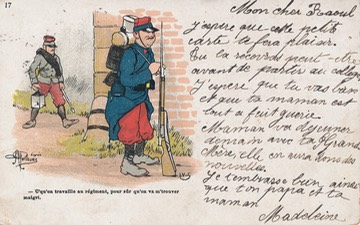 17
Mon cher Raoul
J'espère que cette petite
carte te fera plaisir.
Tu la recevras peut-être
avant de partir au collège
J'espère que tu vas bien
et que ta maman est
tout a fait guerie.
Maman va dejeuner
demain avec ta Grand
Mère, elle en aura donc des
nouvelles.
Je t'embrasse bien ainsi
que ton papa et ta
maman
Madeleine
— C'qu'on travaille au régiment, pour sûr qu'on va m'trouver
maigri.